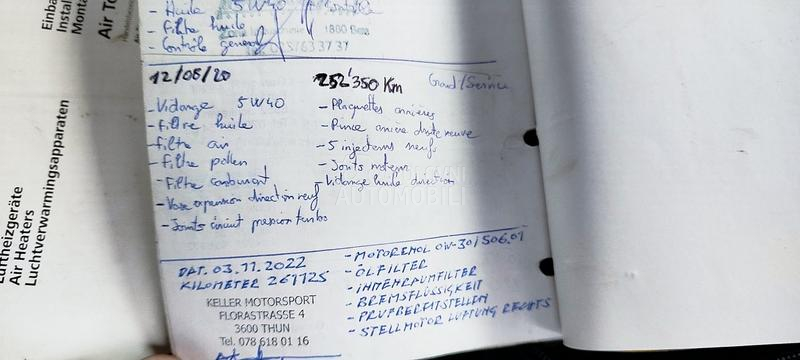 - Huile 5W40
- Filtre huile
- Contrôle general
1880 Bex
63 37 37
12/05/20 252'350 Km Grand/Service
- Vidange 5W40
- Filtre huile
- Filtre air
- Filtre pollen
- Filtre carburant
- Vase expansion direction neuf
- Joints circuit pression turbo
- Plaquettes arrières
- Pince arrière droite neuve
- 5 injecteurs neufs
- Joints moteur
- Vidange huile direction
AUTOMOBILI
DAT. 03.11.2022
KILOMETER 261725
KELLER MOTORSPORT
FLORASTRASSE 4
3600 THUN
Tel. 078 618 01 16
- MOTORENÖL 0W-30/506.01
- ÖLFILTER
- INNENRAUMFILTER
- BREMSFLÜSSIGKEIT
- PRÜFBEREITSTELLEN
- STELLMOTOR LÜFTUNG RECHTS
Einba
Instal
Monta
Air To
Luftheizgeräte
Air Heaters
Luchtverwarmingsapparaten